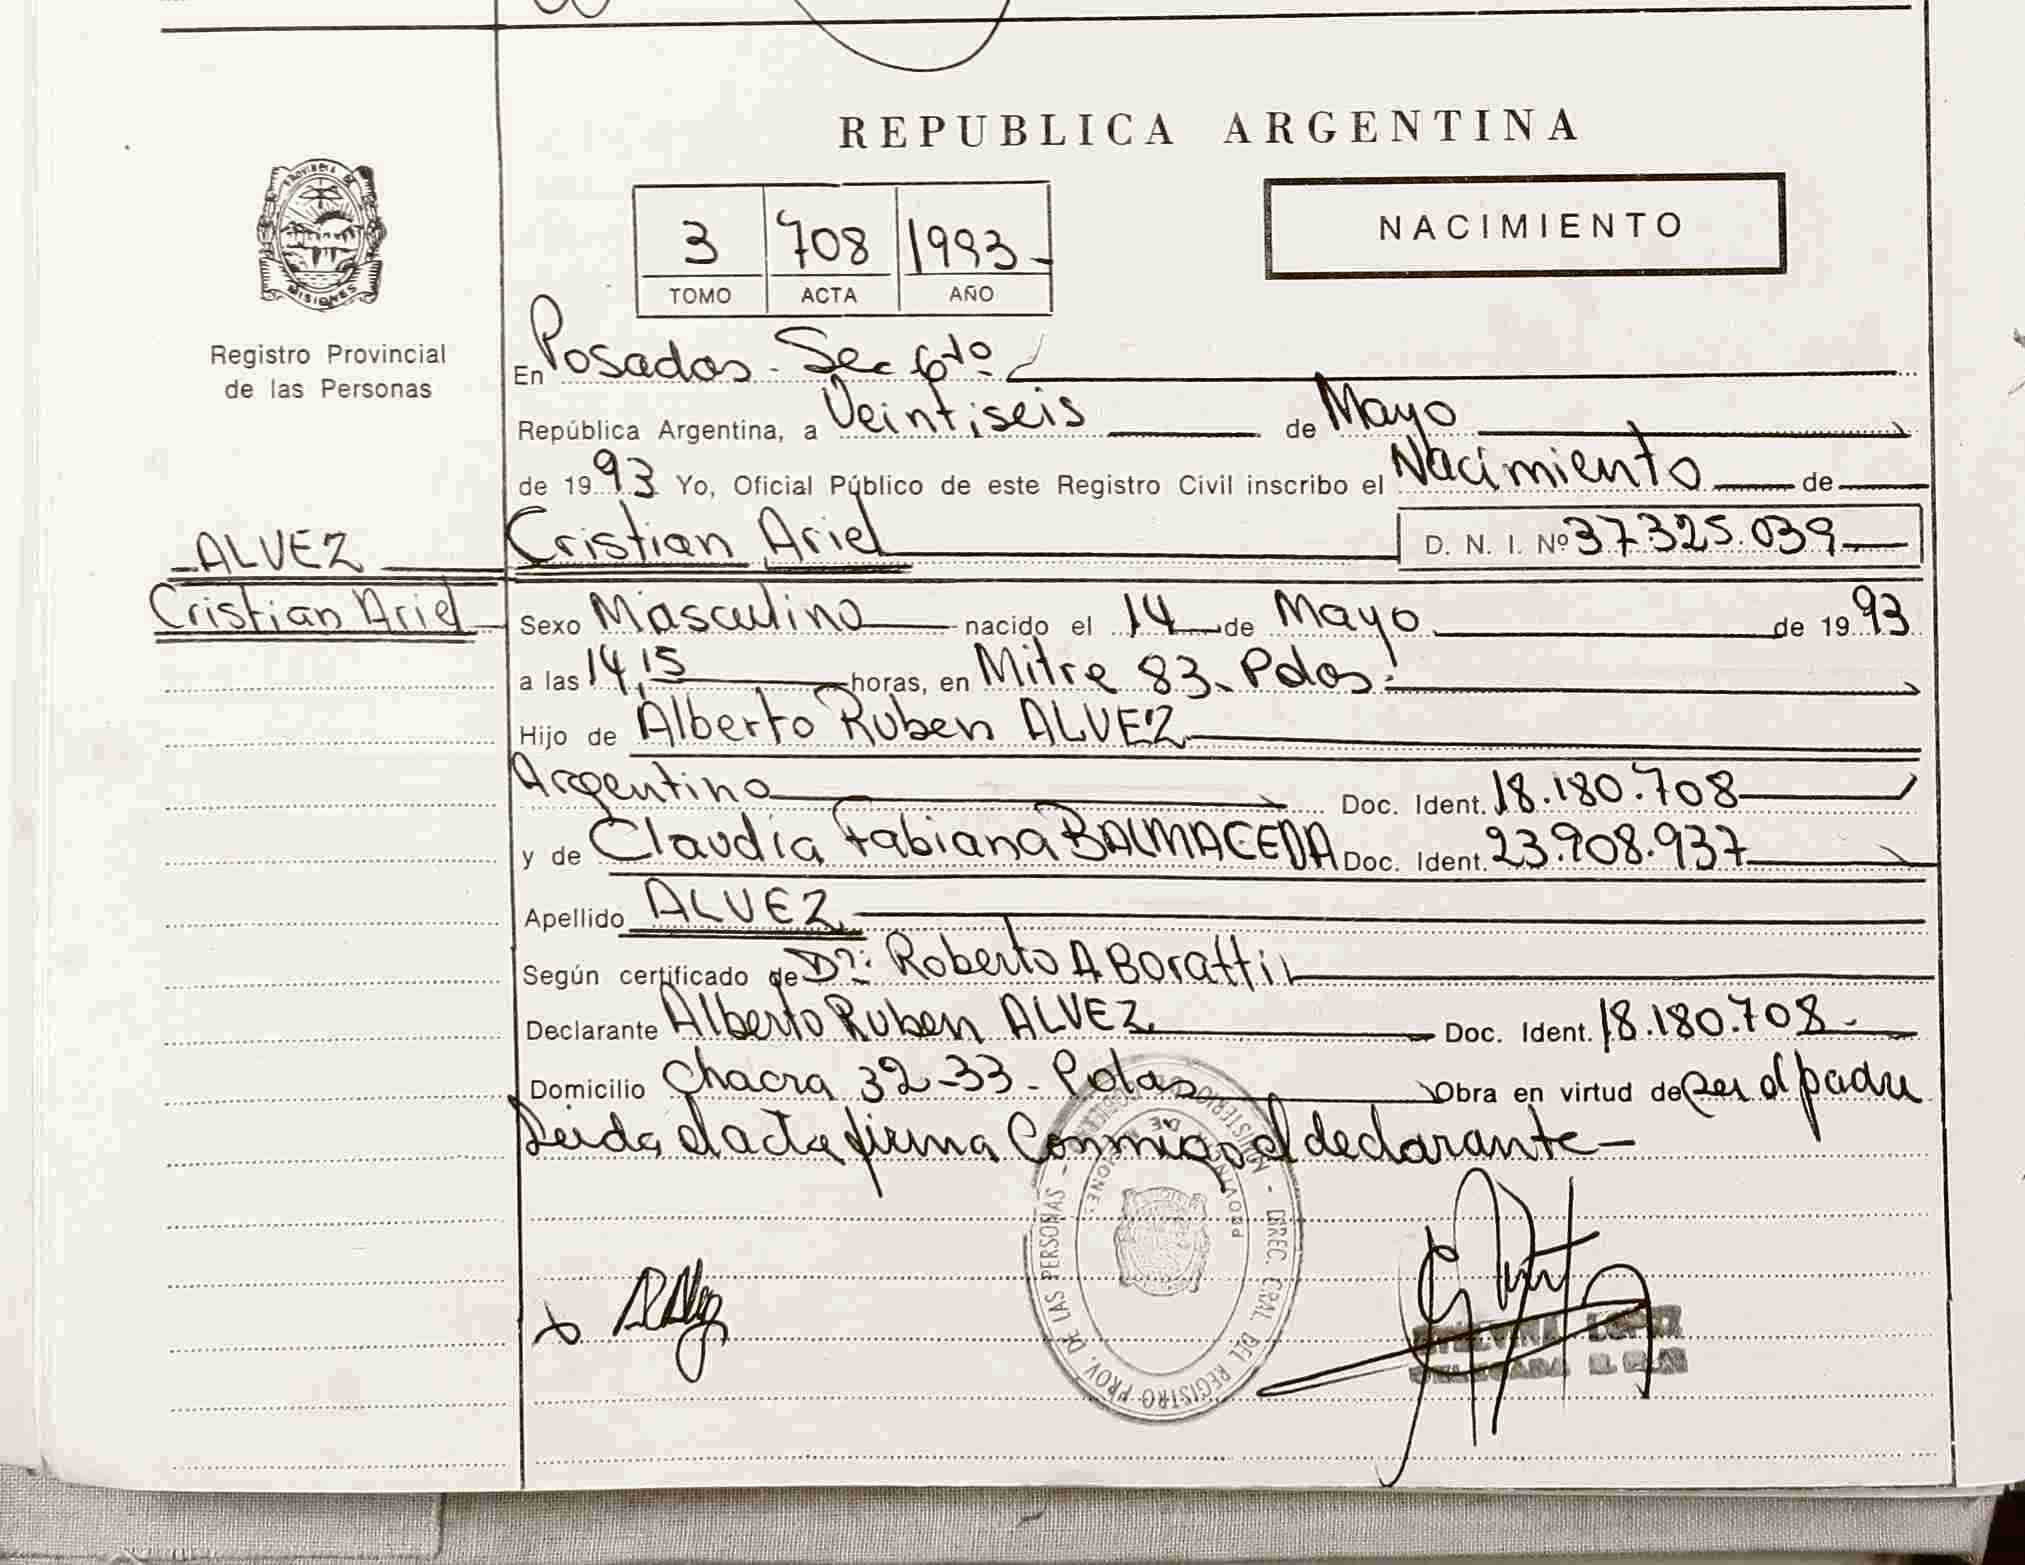 REPUBLICA ARGENTINA
PROVINCIA DE
MISIONES
Registro Provincial
de las Personas
3 708 1993
TOMO ACTA AÑO
NACIMIENTO
En Posadas - Sec 6to
República Argentina, a Veintiseis de Mayo
de 1993 Yo, Oficial Público de este Registro Civil inscribo el Nacimiento de
ALVEZ
Cristian Ariel
Cristian Ariel D. N. I. Nº 37325.039
Sexo Masculino nacido el 14 de Mayo de 1993
a las 14,15 horas, en Mitre 83 - Pdas.
Hijo de Alberto Ruben ALVEZ
Argentino Doc. Ident. 18.180.708
y de Claudia Fabiana BALMACEDA Doc. Ident. 23.908.937
Apellido ALVEZ
Según certificado de Dr: Roberto A Boratti
Declarante Alberto Ruben ALVEZ Doc. Ident. 18.180.708
Domicilio Chacra 32-33 - Pdas Obra en virtud de ser el padre
Leida el acta firma Conmigo el declarante
DIREC. GRAL. DEL REGISTRO PROV. DE LAS PERSONAS
PROVINCIA DE MISIONES
LOPEZ
DELEGADA